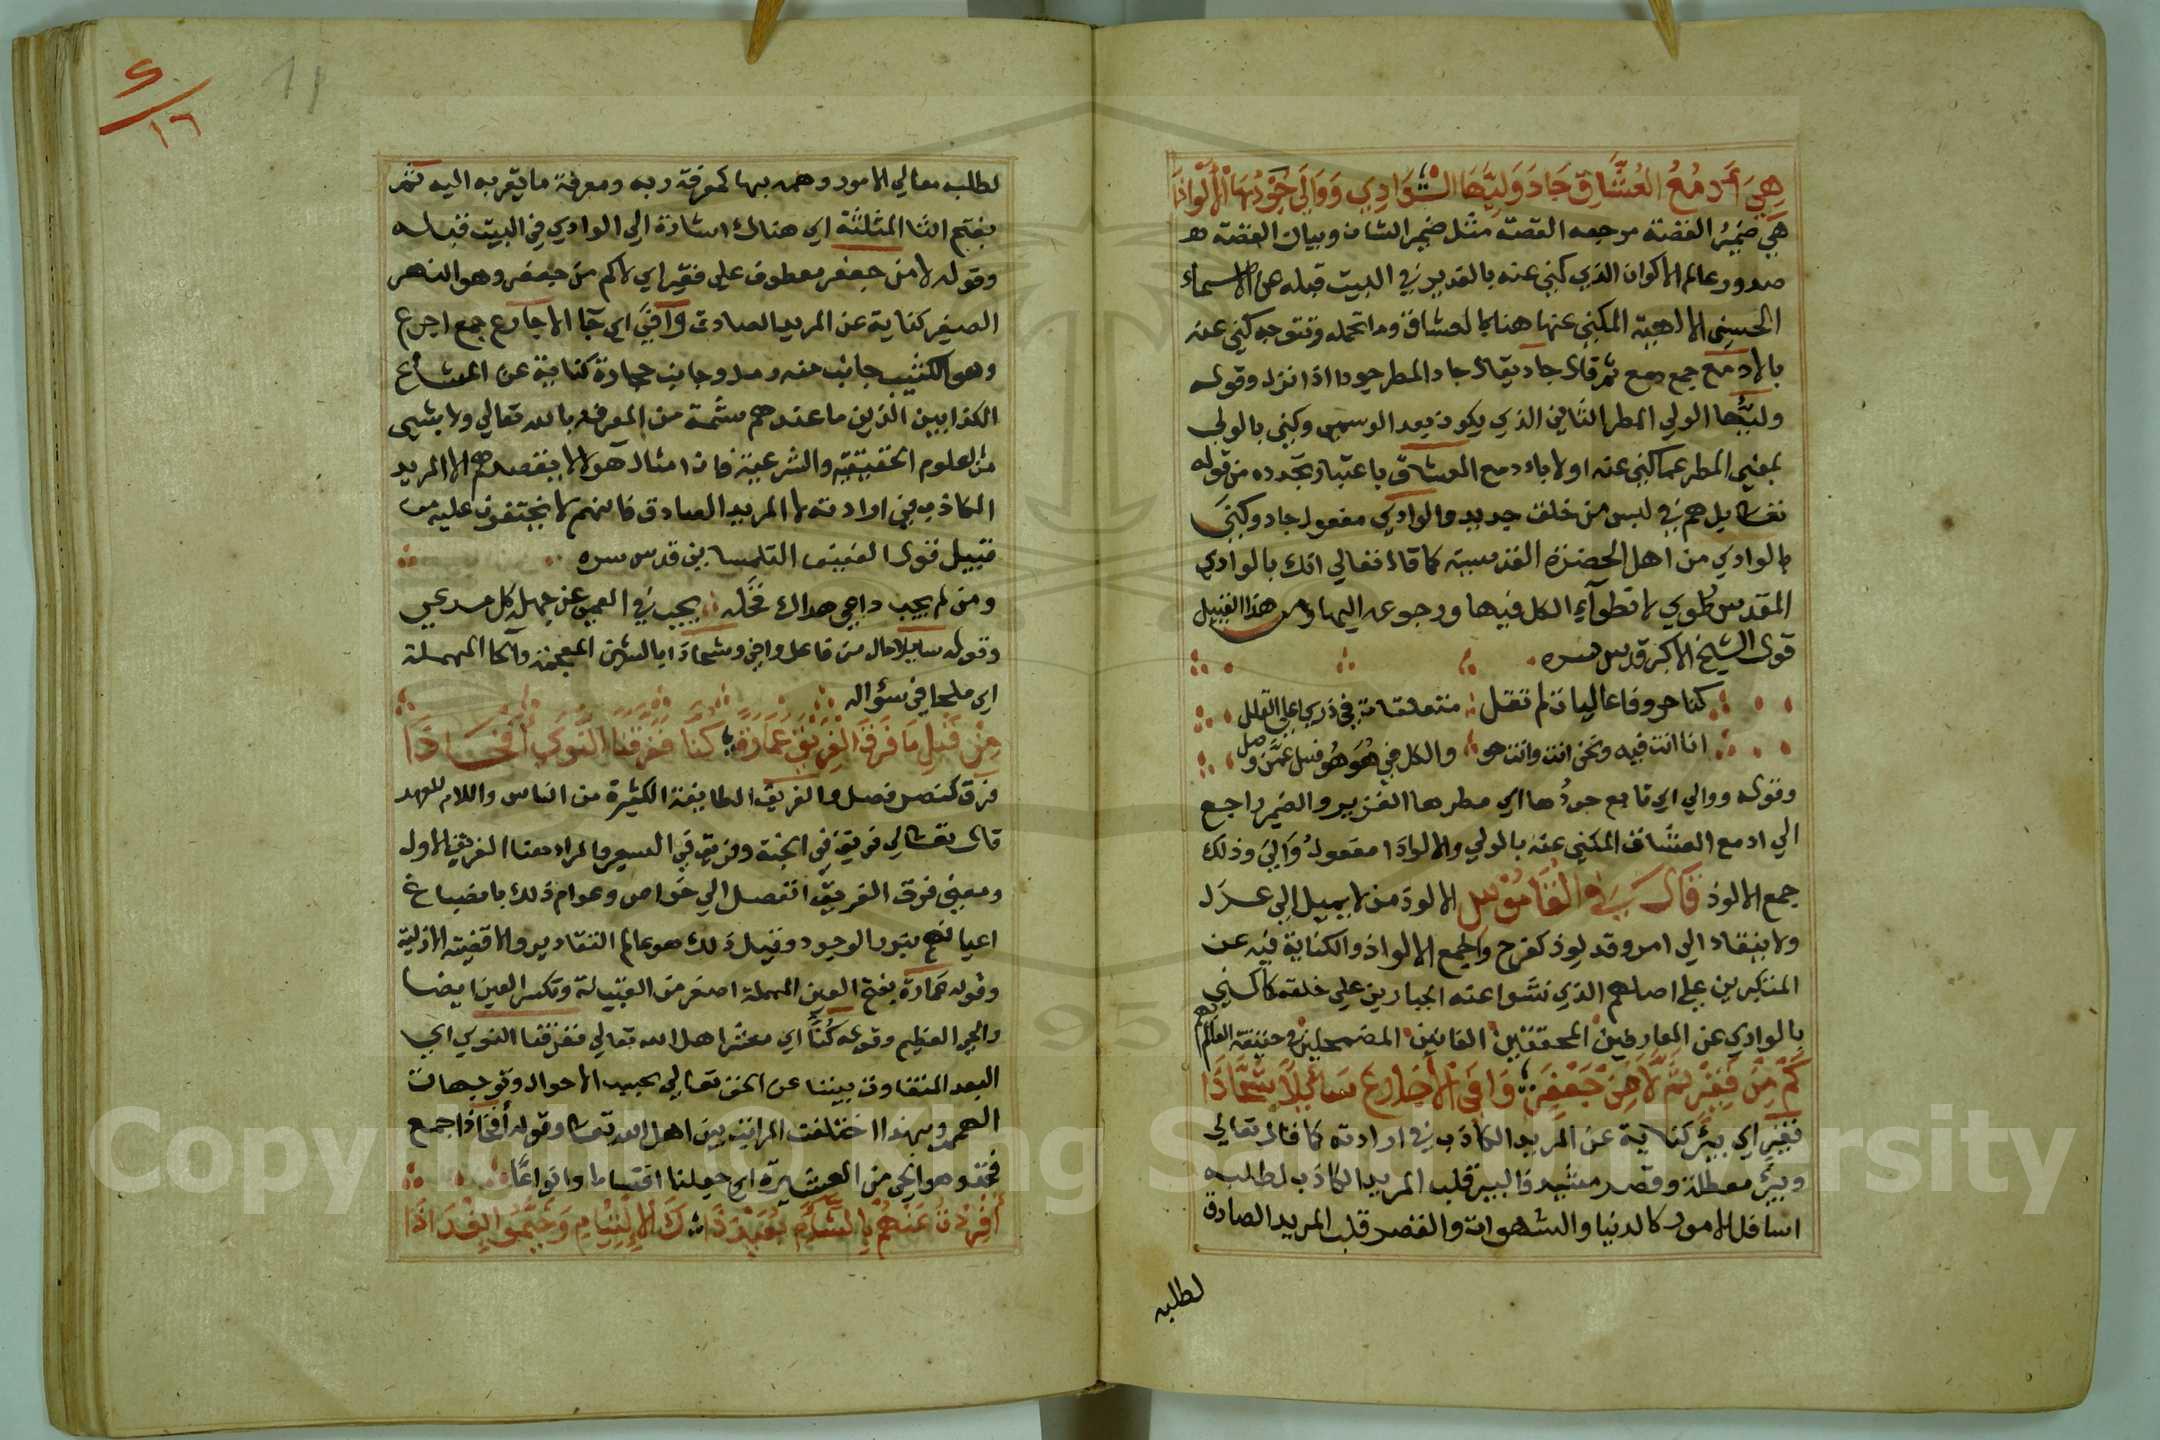 هِيَ أَدْمُعُ العُشَّاقِ جَادَ وَلِيُّهَا الْوَادِي وَوَالَى جُوْدُهَا الْأَلْوَاذَا
هي ضمير القصة مرجعه القصة مثل ضمير الشان وبيان القصة هو
صدور عالم الاكوان الذي كني عنه بالغدير في البيت قبله عن الاسماء
الحسنى الالهية المكني عنها هنا بالعشاق وما تحمله وتتوجه كني عنه
بالادمع جمع دمع ثم قال جاد يقال جاد المطر جودا اذا نزل وقوله
وليها الولي المطر الثاني الذي يكون بعد الوسمي وكني بالولي
بمعني المطر عما كني عنه اولا بادمع العشاق باعتبار تجدده من قوله
تعالى بل هم في لبس من خلق جديد والوادي مفعول جاد وكني
بالوادي من اهل الحضرة القدسية كما قال تعالي انك بالوادي
المقدس طوي لانطوآء الكل فيها ورجوعه اليها ومن هذا القبيل
قول الشيخ الاكبر قدس سره
كنا حروفا عاليات لم نقل متعلقات في ذري اعلي القلل
انا انت فيه ونحن انت وانت هو والكل في هُوَ هُو فسل عمن وصل
وقوله ووالي اي تابع جودُها اي مطرها الغزير والضمير راجع
الي ادمع العشاق المكني عنه بالولي والالواذا مفعول وَالي وذلك
جمع الالوذ قال في القاموس الالوذ من لا يميل الى عدل
ولا ينقاد الي امر وقد لوذ كفرح والجمع الالواذ والكناية فيه عن
المنكرين علي اصلهم الذي نشوا عنه الجبارين علي خلقه كما كني
بالوادي عن العارفين المحققين الفانين المضمحلين في حقيقة العلم
كَمْ مِنْ فَقِيْرٍ ثَمَّ لَا مِنْ جَعْفَرٍ وَافَى الْأَجَارِعَ سَائِلًا شَحَّاذَا
فقير اي بئر كناية عن المريد الكاذب في ارادته كما قال تعالي
وبئر معطلة وقصر مشيد فالبير قلب المريد الكاذب لطلبه
اسافل الامور كالدنيا والشهوات والقصر قلب المريد الصادق
لطلبه
٤
١٦
لطلبه معالي الامور وهمه بها كمعرفة ربه ومعرفة ما يقربه اليه ثم
بفتح الثا المثلثة اي هناك اشارة الي الوادي في البيت قبله
وقوله لا من جعفر معطوف علي فقير اي لا كم من جعفر وهو النهر
الصغير كناية عن المريد الصادق وافى اي جآ الاجارع جمع اجرع
وهو الكثيب جانب منه رمل وجانب حجارة كناية عن المشائخ
الكذابين الذين ما عندهم شمة من المعرفة بالله تعالي ولا بشيء
من العلوم الحقيقية والشرعية فان امثال هولا لا يقصدهم الا المريد
الكاذب في ارادته لا المريد الصادق فانهم لا يختفون عليه من
قبيل قول العفيف التلمساني قدس سره
ومن لم يجب داعي هداك فخله يجب في العمي عن جهل كل مدعي
وقوله سايلا حال من فاعل وافي وشحاذا بالشين المعجمة والحا المهملة
اي ملحا في سؤاله
مِنْ قَبْلِ مَا فَرَقَ الْفَرِيْقُ عَمَارَةٌ كُنَّا فَفَرَّقَنَا النَّوَى أَفْخَاذَا
فرق كنصر فصل والفريق الطايفة الكثيرة من الناس واللام للعهد
قال تعالي فريق في الجنة وفريق في السعير والمراد هنا الفريق الاول
ومعني فرق الفريق انفصل الي خواص وعوام ذلك بامضباغ
اعيانهم بنور الوجود وقبل ذلك هو عالم التقادير والاقضيه الازلية
وقوله عمارة بفتح العين المهملة اصغر من القبيلة وتكسر العين ايضا
والحي العظيم وقوله كُنَّا اي معشر اهل الله تعالي ففرقنا النوي اي
البعد المتفاوت بيننا عن الحق تعالي بحسب الاحوال وتوجيهات
الهمم وبهذا اختلفت المراتب بين اهل الله تعالي وقوله أفخاذا جمع
فخذ وهو الحي من العشيرة اي جعلنا اقساما وانواعًا
أُفْرِدْتُ عَنْهُمْ بِالشَّآمِ بُعَيْدَ ذَا كَ الْإِلْتِيَامِ وَخَيَّمُوا بِغْدَاذَا